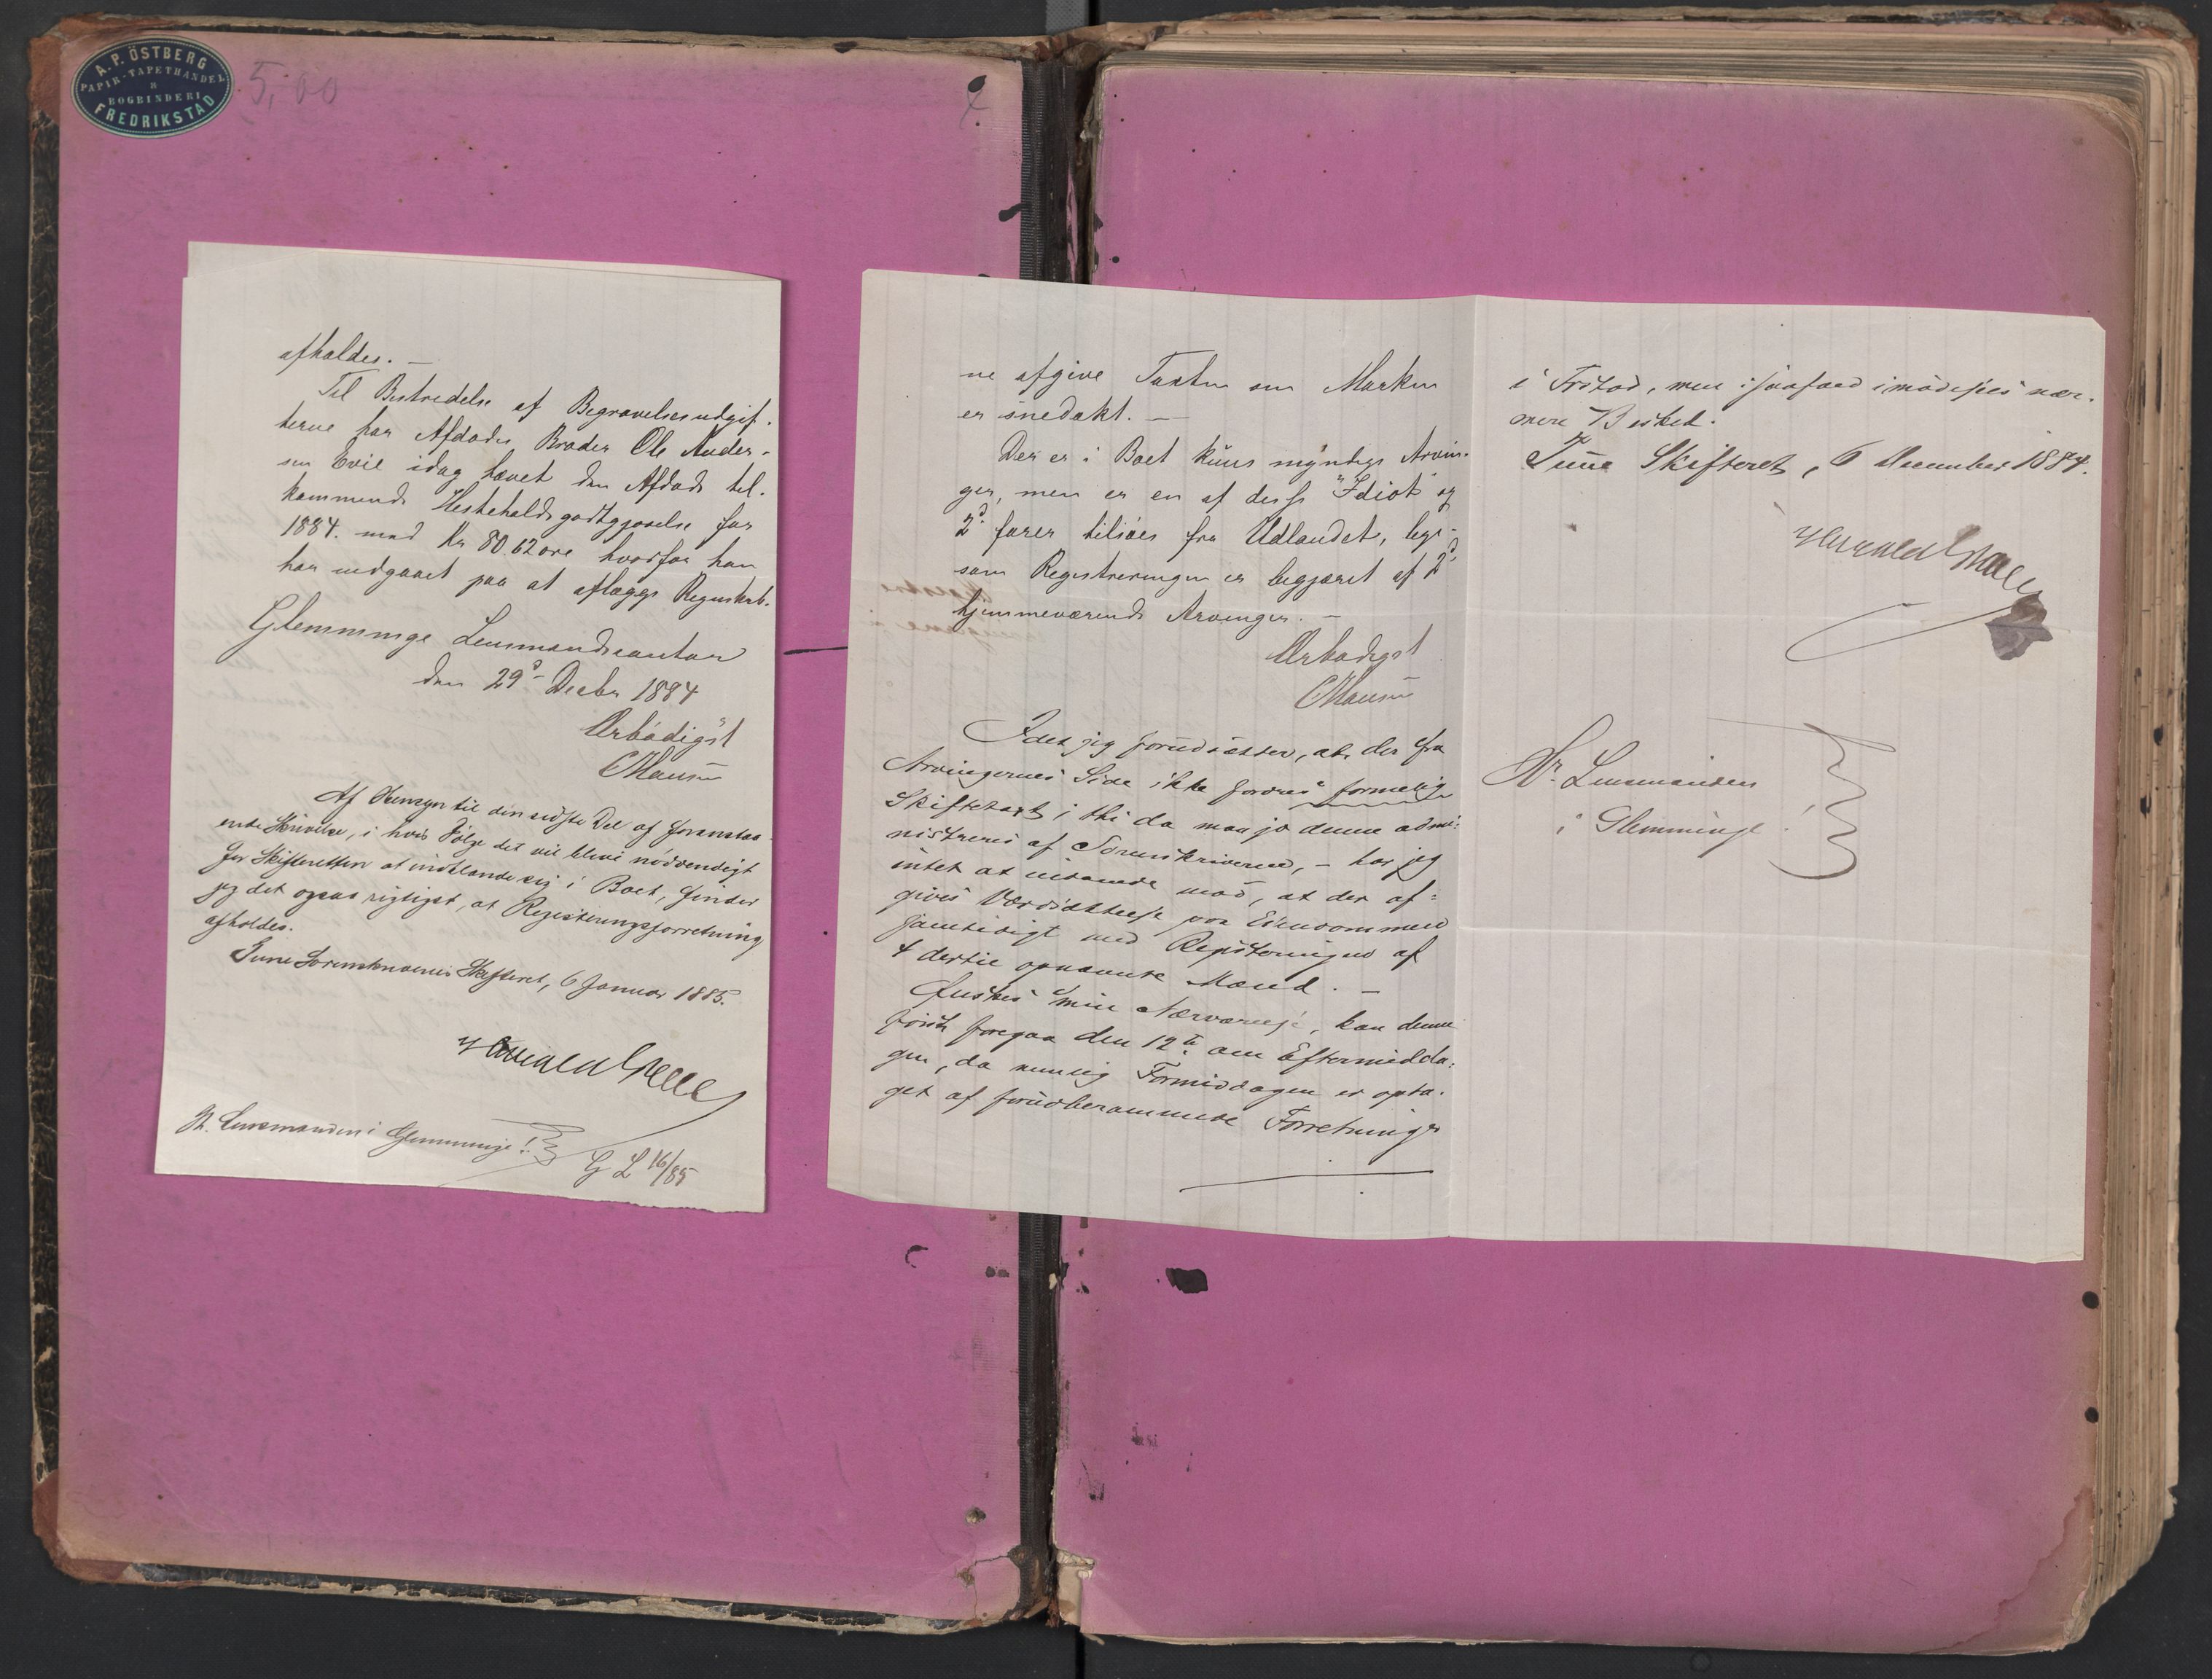 A. P. ÖSTBERG
PAPIR-TAPETHANDEL
&
BOGBINDERI
FREDRIKSTAD
5,00
afholdes. —
Til Bestridelse af Begravelsesudgif-
terne har Afdødes Broder Ole Ander-
sen Evie idag hævet den Afdøde til-
kommende Hesteholdsgodtgjørelse for
1884. med Kr 80.62 øre hvorfor han
har indgaaet paa at aflægge Regnskab.
Glemminge Lensmandscontor
den 29d Decbr 1884
Ærbødigst
CHansen
Af Hensyn til den sidste Del af foranstaa-
ende Skrivelse, i hvis Følge det vil blive nødvendigt
for Skifteretten at indblande sig i Boet, finder
jeg det ogsaa rigtigst, at Registreringsforretning
afholdes.
Tune Sorenskriveris Skifteret, 6 Januar 1885.
Hr. Lensmanden i Glemminge!
G L 16/85
ne afgive Taxten om Marken
er snedækt. —
Der er i Boet kuns myndige Arvin-
ger, men er en af disse "Idiot" og
2de farer tilsøes fra Udlandet, lige-
som Registreringen er begjæret af 2de
hjemmeværende Arvinger. —
Ærbødigst
CHansen
Idet jeg forudsætter, at der fra
Arvingernes Side ikke fordres formelig
Skiftetaxt, thi da maa jo denne admi-
nistreres af Sorenskriveren, — har jeg
intet at indvende mod, at der af-
gives Værdsættelse paa Eiendommen
samtidigt med Registreringen af
4 dertil opnævnte Mænd. —
Ønskes min Nærværelse, kan denne
først foregaa den 12te om Eftermidda-
gen, da nemlig Formiddagen er opta-
get af forudberammede Forretninger
i Fr.stad, men i saafald imødesees nær-
mere Besked.
Tune Skifteret, 6 December 1884.
Hr. Lensmanden
i Glemminge!